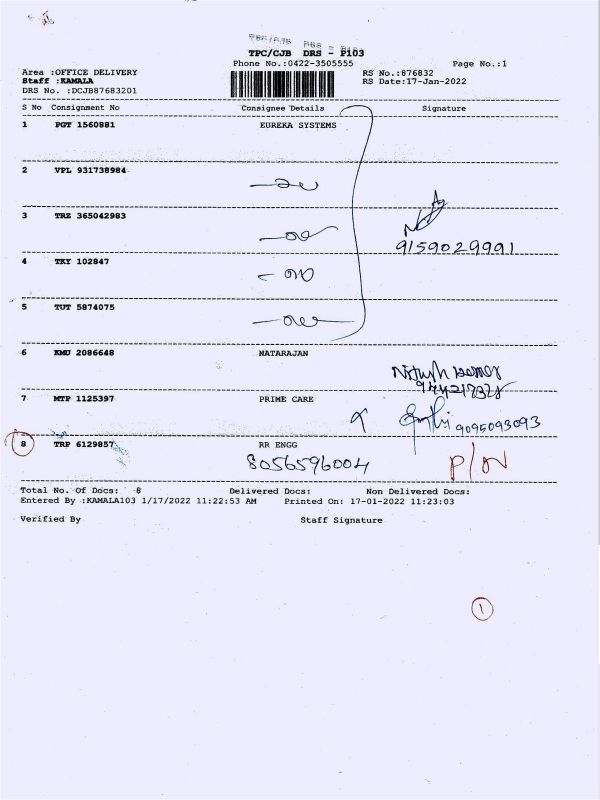 TPC/CJB DRS - P103
Phone No.:0422-3505555
Page No.:1
Area :OFFICE DELIVERY
RS No.:876832
Staff :KAMALA
RS Date:17-Jan-2022
DRS No. :DCJB87683201
S No Consignment No Consignee Details Signature
1 PGT 1560881 EUREKA SYSTEMS
2 VPL 931738984
3 TRZ 365042983
9159029991
4 TKY 102847
5 TUT 5874075
6 KMU 2086648 NATARAJAN
7 MTP 1125397 PRIME CARE
9095093093
8 TRP 6129857 RR ENGG
8056596004 P/N
Total No. Of Docs: 8 Delivered Docs: Non Delivered Docs:
Entered By :KAMALA103 1/17/2022 11:22:53 AM Printed On: 17-01-2022 11:23:03
Verified By Staff Signature
1